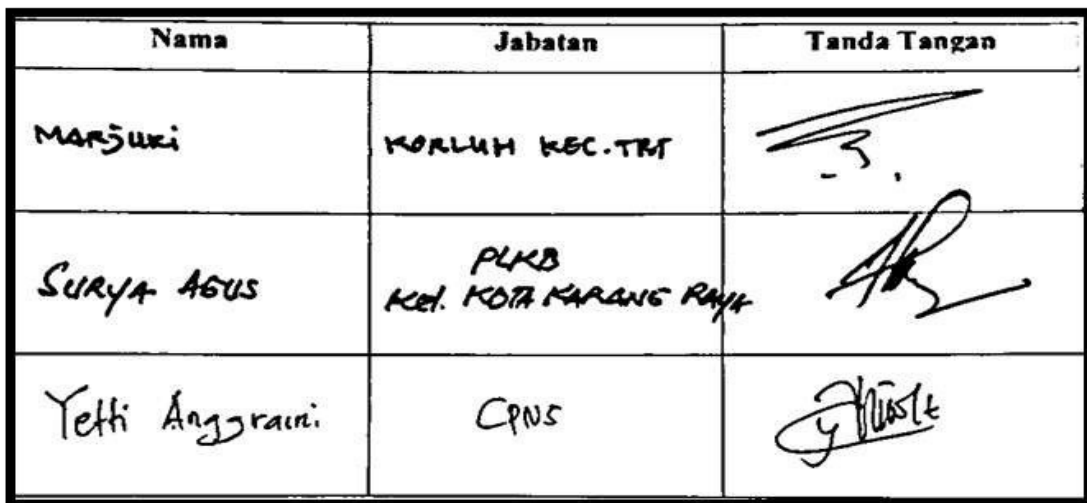 Nama Jabatan Tanda Tangan
MARJUKI KORLUH KEC. TBT
PLKB
SURYA AGUS Kel. KOTA KARANG RAYA
Yetti Anggraini. CPNS